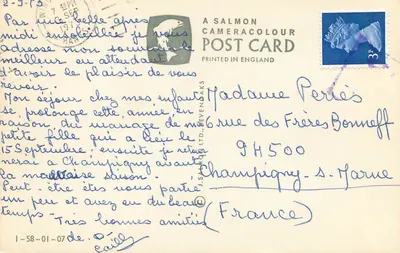 2-9-73
Par une belle après
midi ensoleillée je vous
adresse mon souvenir le
meilleur en attendant
d'avoir le plaisir de vous
revoir.
Mon séjour chez mes enfants
se prolonge cette année en
raison du mariage de ma
petite fille qui a lieu le
15 septembre, ensuite je retour
nerai à Champigny avant
la mauvaise saison.
Peut-être êtes vous partie
un peu et avez eu du beau
temps - Très bonnes amitiés
de
1-58-01-07
A SALMON
CAMERACOLOUR
POST CARD
PRINTED IN ENGLAND
J. SALMON LTD., SEVENOAKS ©
3P
Madame Perriès
6 rue des Frères Bonneff
94500
Champigny-s-Marne
(France)